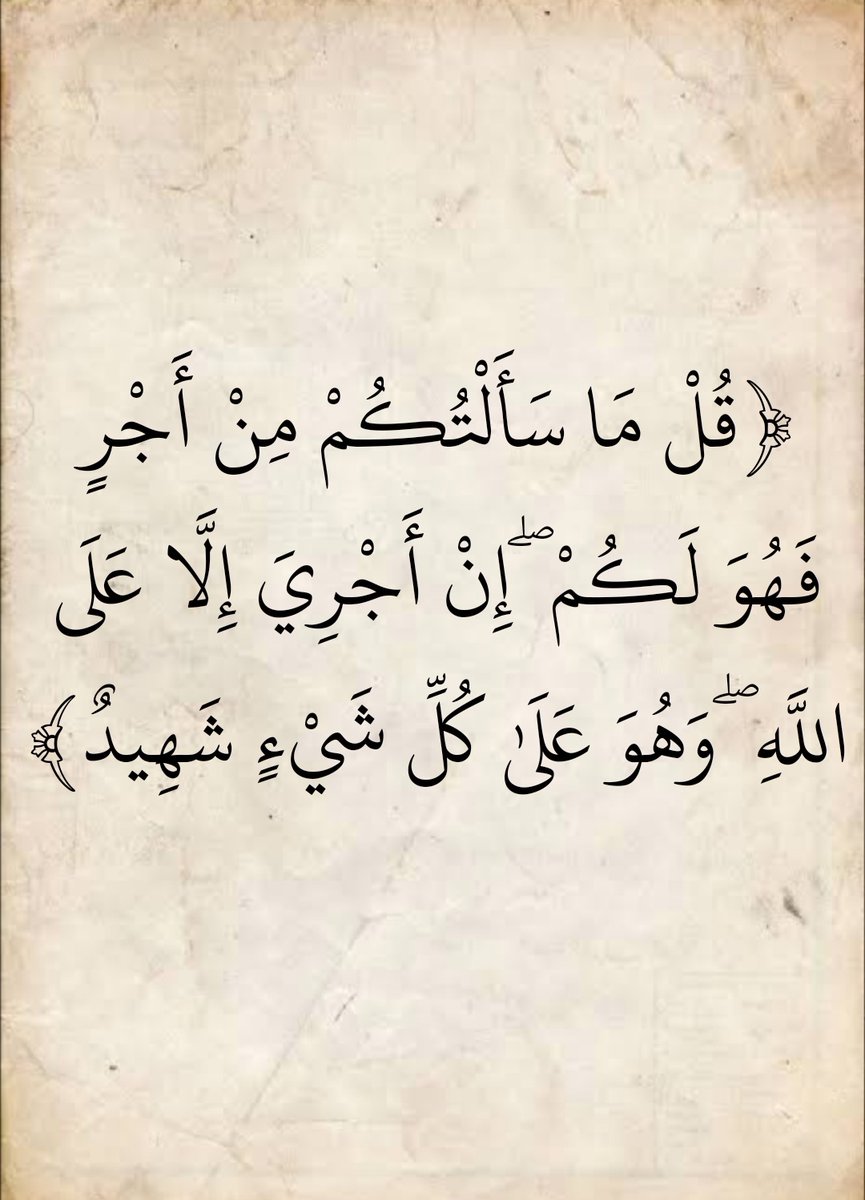 ﴿قُلْ مَا سَأَلْتُكُمْ مِنْ أَجْرٍ
فَهُوَ لَكُمْ ۖ إِنْ أَجْرِيَ إِلَّا عَلَى
اللَّهِ ۖ وَهُوَ عَلَىٰ كُلِّ شَيْءٍ شَهِيدٌ﴾